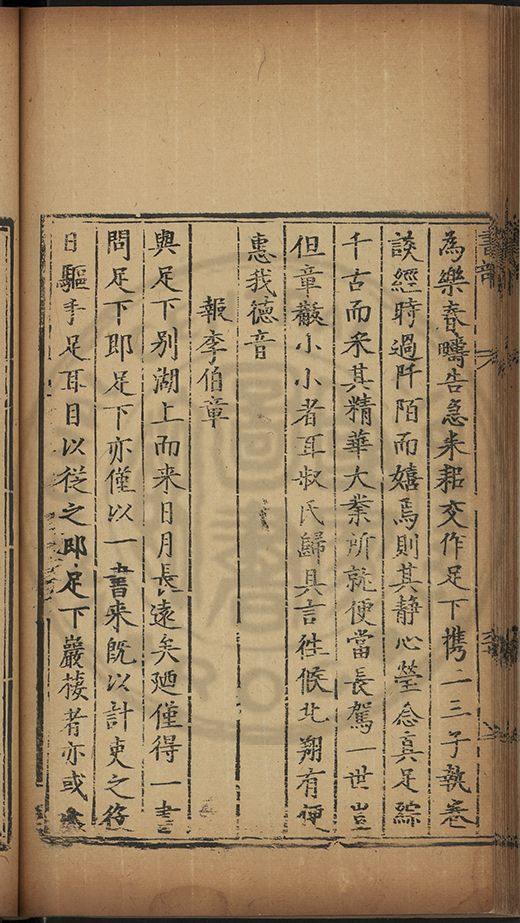 書部
為樂春疇告急耒耜交作足下携一三子執卷
談經時過阡陌而嬉焉則其静心瑩念真足綜
千古而采其精華大業所就便當長駕一世豈
但章蔽小小者耳叔氏歸具言徃候北翔有便
惠我德音
報李伯章
與足下别湖上而来日月長遠矣廼僅得一書
問足下即足下亦僅以一書来既以計吏之役
日驅手足耳目以從之即足下巖棲者亦或